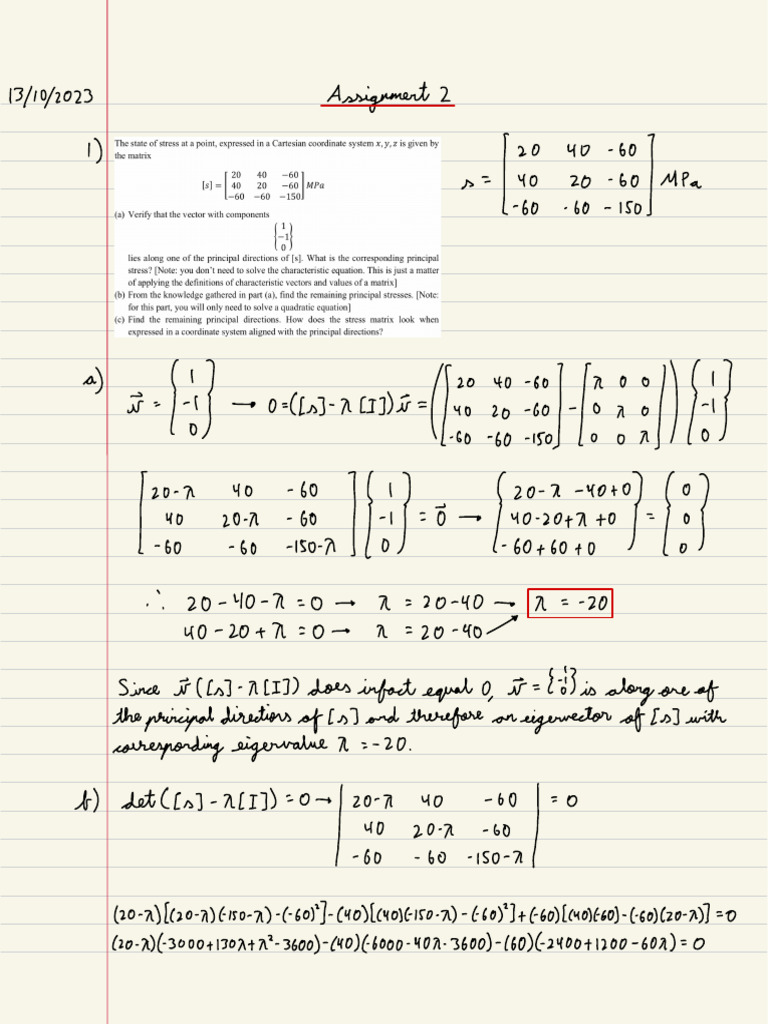 13/10/2023
Assignment 2
1)
The state of stress at a point, expressed in a Cartesian coordinate system x, y, z is given by
the matrix
[s] = [20 40 −60
40 20 −60
−60 −60 −150] MPa
(a) Verify that the vector with components
{1
−1
0}
lies along one of the principal directions of [s]. What is the corresponding principal
stress? [Note: you don't need to solve the characteristic equation. This is just a matter
of applying the definitions of characteristic vectors and values of a matrix]
(b) From the knowledge gathered in part (a), find the remaining principal stresses. [Note:
for this part, you will only need to solve a quadratic equation]
(c) Find the remaining principal directions. How does the stress matrix look when
expressed in a coordinate system aligned with the principal directions?
s = [20 40 -60
40 20 -60
-60 -60 -150] MPa
a)
v⃗ = {1 -1 0} → 0 = ([s] - λ[I])v⃗ = ([20 40 -60
40 20 -60
-60 -60 -150] - [λ 0 0
0 λ 0
0 0 λ]) {1 -1 0}
[20-λ 40 -60
40 20-λ -60
-60 -60 -150-λ] {1 -1 0} = 0⃗ → {20-λ-40+0
40-20+λ+0
-60+60+0} = {0 0 0}
∴ 20-40-λ = 0 → λ = 20-40 → λ = -20
40-20+λ = 0 → λ = 20-40
Since v⃗([s]-λ[I]) does infact equal 0, v⃗ = {1 -1 0} is along one of
the principal directions of [s] and therefore an eigenvector of [s] with
corresponding eigenvalue λ = -20.
b) det([s]-λ[I]) = 0 → |20-λ 40 -60
40 20-λ -60
-60 -60 -150-λ| = 0
(20-λ)[(20-λ)(-150-λ)-(-60)²]-(40)[(40)(-150-λ)-(-60)²]+(-60)[(40)(-60)-(-60)(20-λ)] = 0
(20-λ)(-3000+130λ+λ²-3600)-(40)(-6000-40λ-3600)-(60)(-2400+1200-60λ) = 0